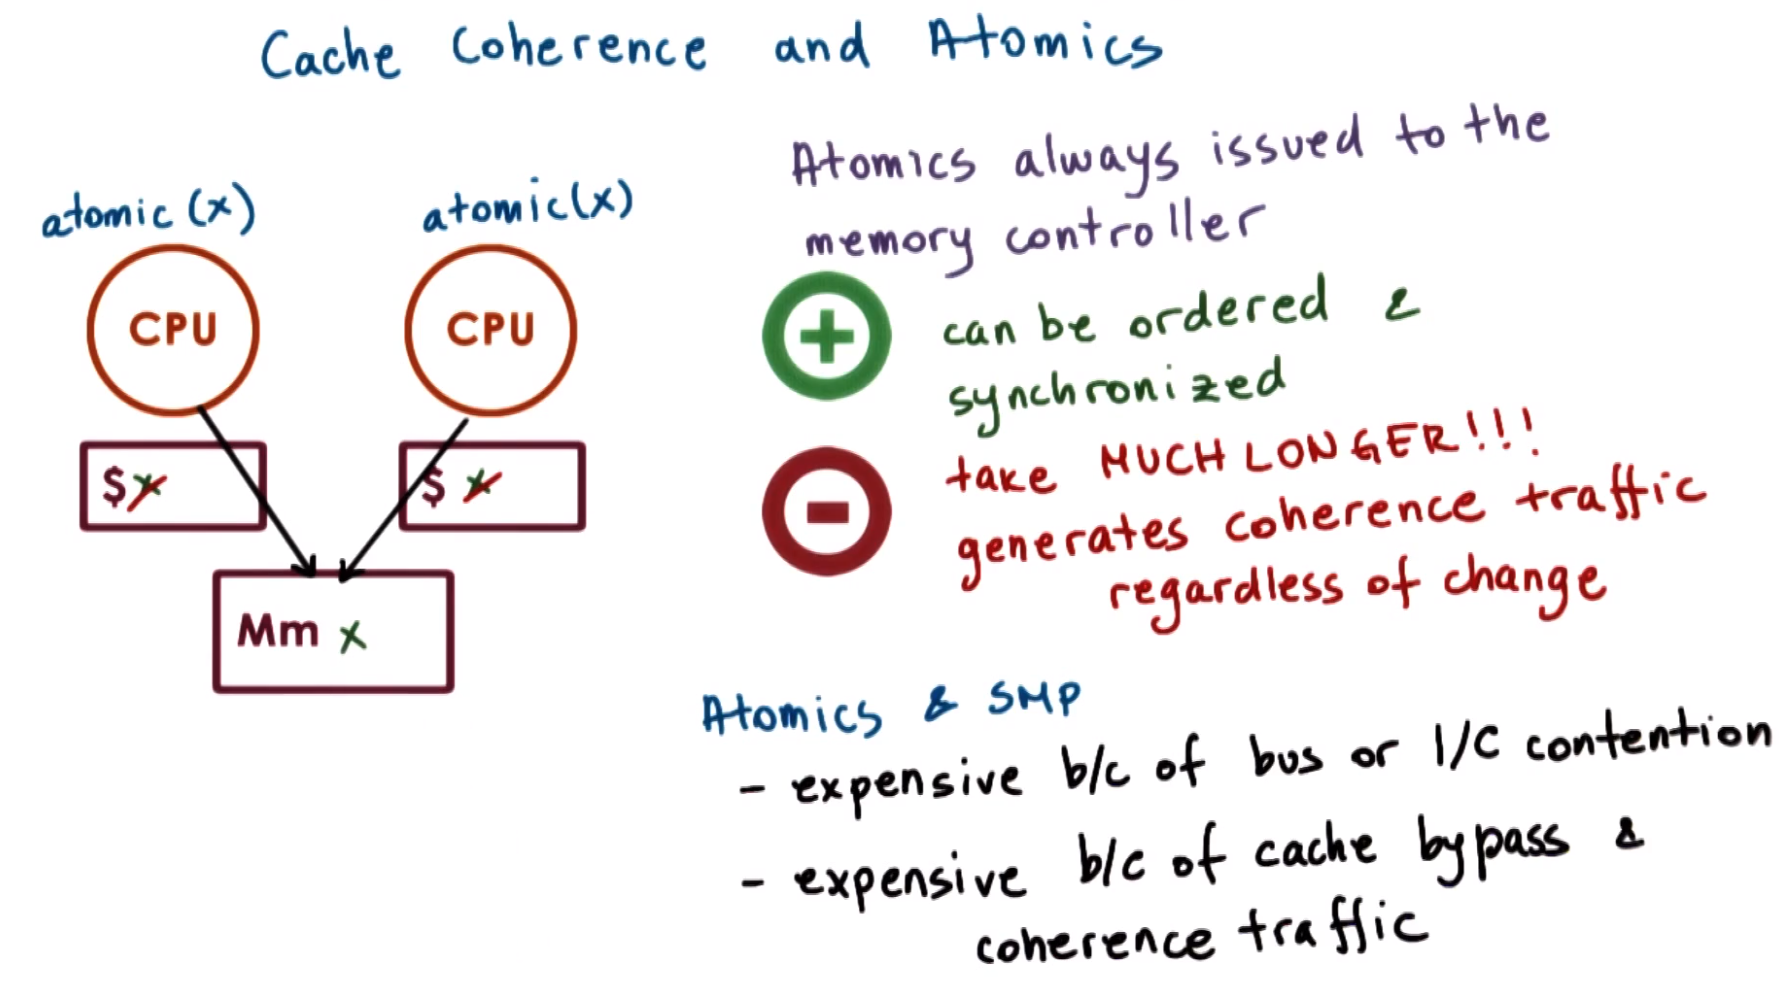 Cache Coherence and Atomics
atomic (x)
atomic(x)
CPU
CPU
$ x
$ x
Mm x
Atomics always issued to the
memory controller
+
can be ordered &
synchronized
-
take MUCH LONGER!!!
generates coherence traffic
regardless of change
Atomics & SMP
- expensive b/c of bus or I/C contention
- expensive b/c of cache bypass &
coherence traffic